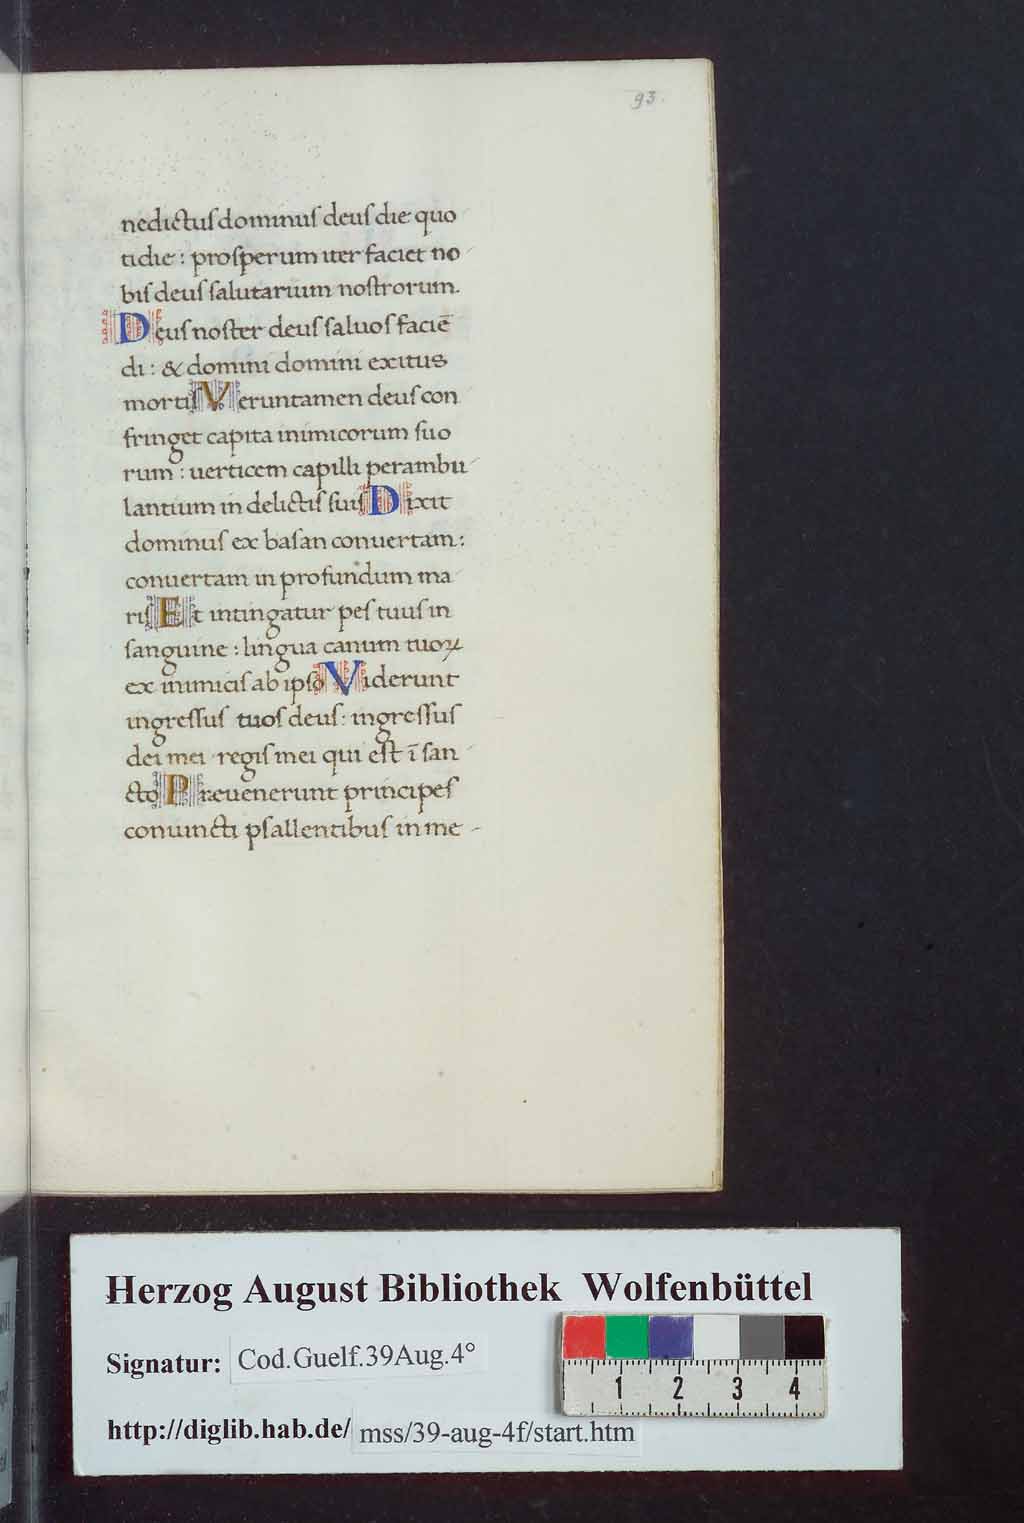 93.
nedictus dominus deus die quo
tidie : prosperum iter faciet no
bis deus salutarium nostrorum.
Deus noster deus saluos faciē
di : & domini domini exitus
mortis Veruntamen deus con
fringet capita inimicorum suo
rum : uerticem capilli perambu
lantium in delictis suis Dixit
dominus ex basan conuertam :
conuertam in profundum ma
ris Et intingatur pes tuus in
sanguine : lingua canum tuoꝝ
ex inimicis ab ipso Viderunt
ingressus tuos deus : ingressus
dei mei regis mei qui est ī san
cto Preuenerunt principes
coniuncti psallentibus in me -
Herzog August Bibliothek Wolfenbüttel
Signatur: Cod.Guelf.39Aug.4°
1 2 3 4
http://diglib.hab.de/ mss/39-aug-4f/start.htm